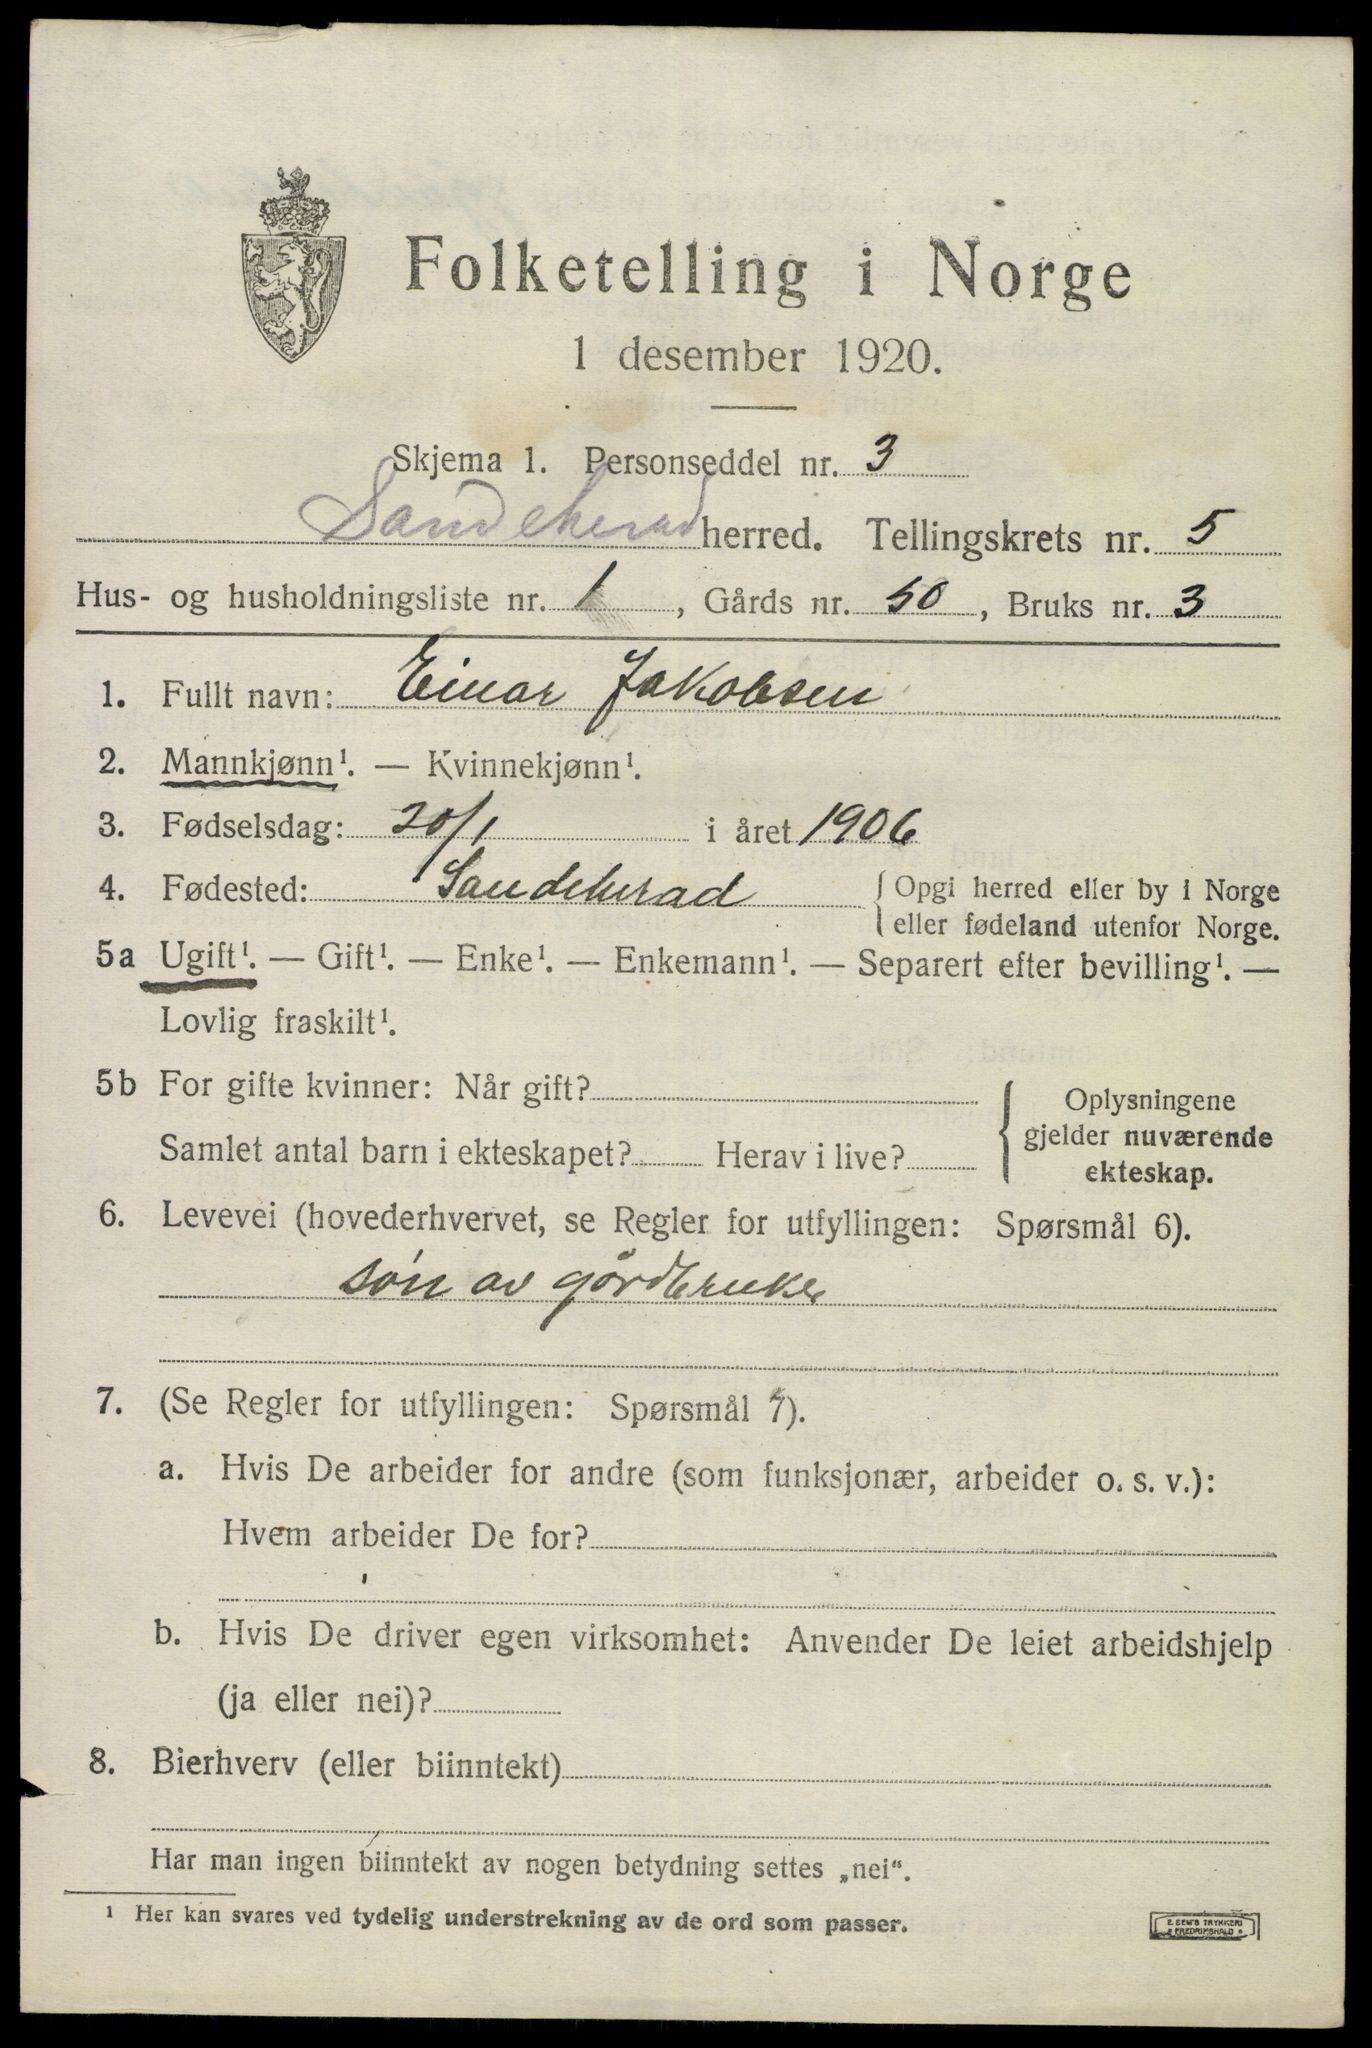 Folketelling i Norge
1 desember 1920.
Skjema 1. Personseddel nr. 3
Sandeherad herred. Tellingskrets nr. 5
Hus- og husholdningsliste nr. 1, Gårds nr. 50, Bruks nr. 3
1. Fullt navn: Einar Jakobsen
2. Mannkjønn¹. — Kvinnekjønn¹.
3. Fødselsdag: 20/1 i året 1906
4. Fødested: Sandeherad { Opgi herred eller by i Norge
eller fødeland utenfor Norge.
5a Ugift¹. — Gift¹. — Enke¹. — Enkemann¹. — Separert efter bevilling¹. —
Lovlig fraskilt¹.
5b For gifte kvinner: Når gift?
Samlet antal barn i ekteskapet? Herav i live?
Oplysningene
gjelder nuværende
ekteskap.
6. Levevei (hovederhvervet, se Regler for utfyllingen: Spørsmål 6).
søn av gårdbruke
7. (Se Regler for utfyllingen: Spørsmål 7).
a. Hvis De arbeider for andre (som funksjonær, arbeider o. s. v.):
Hvem arbeider De for?
b. Hvis De driver egen virksomhet: Anvender De leiet arbeidshjelp
(ja eller nei)?
8. Bierhverv (eller biinntekt)
Har man ingen biinntekt av nogen betydning settes „nei".
¹ Her kan svares ved tydelig understrekning av de ord som passer.
E. SEM'S TRYKKERI
FREDRIKSHALD